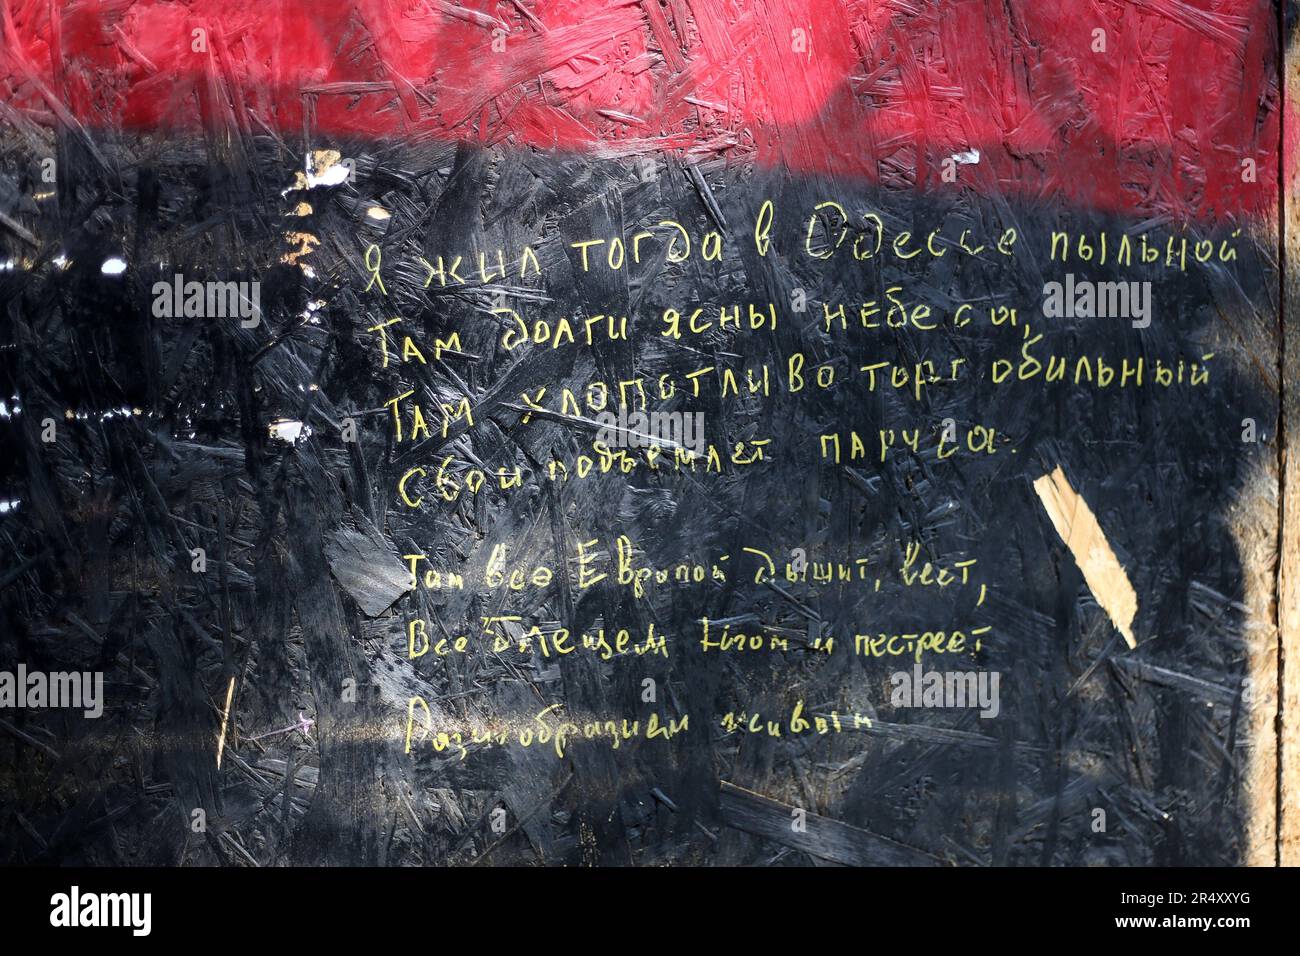 Я жил тогда в Одессе пыльной
Там долги ясны небеса,
Там хлопотливо торг обильный
Свои подъемлет паруса.
Там все Европой дышит, веет,
Все блещет югом и пестреет
Разнообразием живым
alamy
Image ID: 2R4XXYG
www.alamy.com